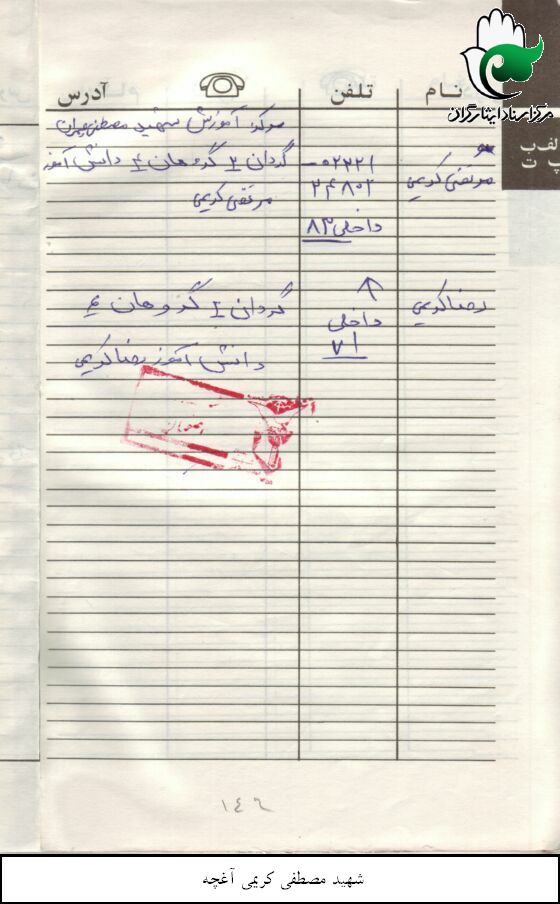 مرکز اسناد ایثارگران
الف ب
پ ت
نام تلفن آدرس
مرکز آموزش شهید مصطفی چمران
مرتضی کریمی ۰۲۲۲۱- گردان ۲ گروهان ۴ دانش آموز
۲۴۸۰۲ مرتضی کریمی
داخلی ۸۳
رضا کریمی گردان ۴ گروهان ۴
داخلی
۷۱ دانش آموز رضا کریمی
۱٤٦
شهید مصطفی کریمی آغچه